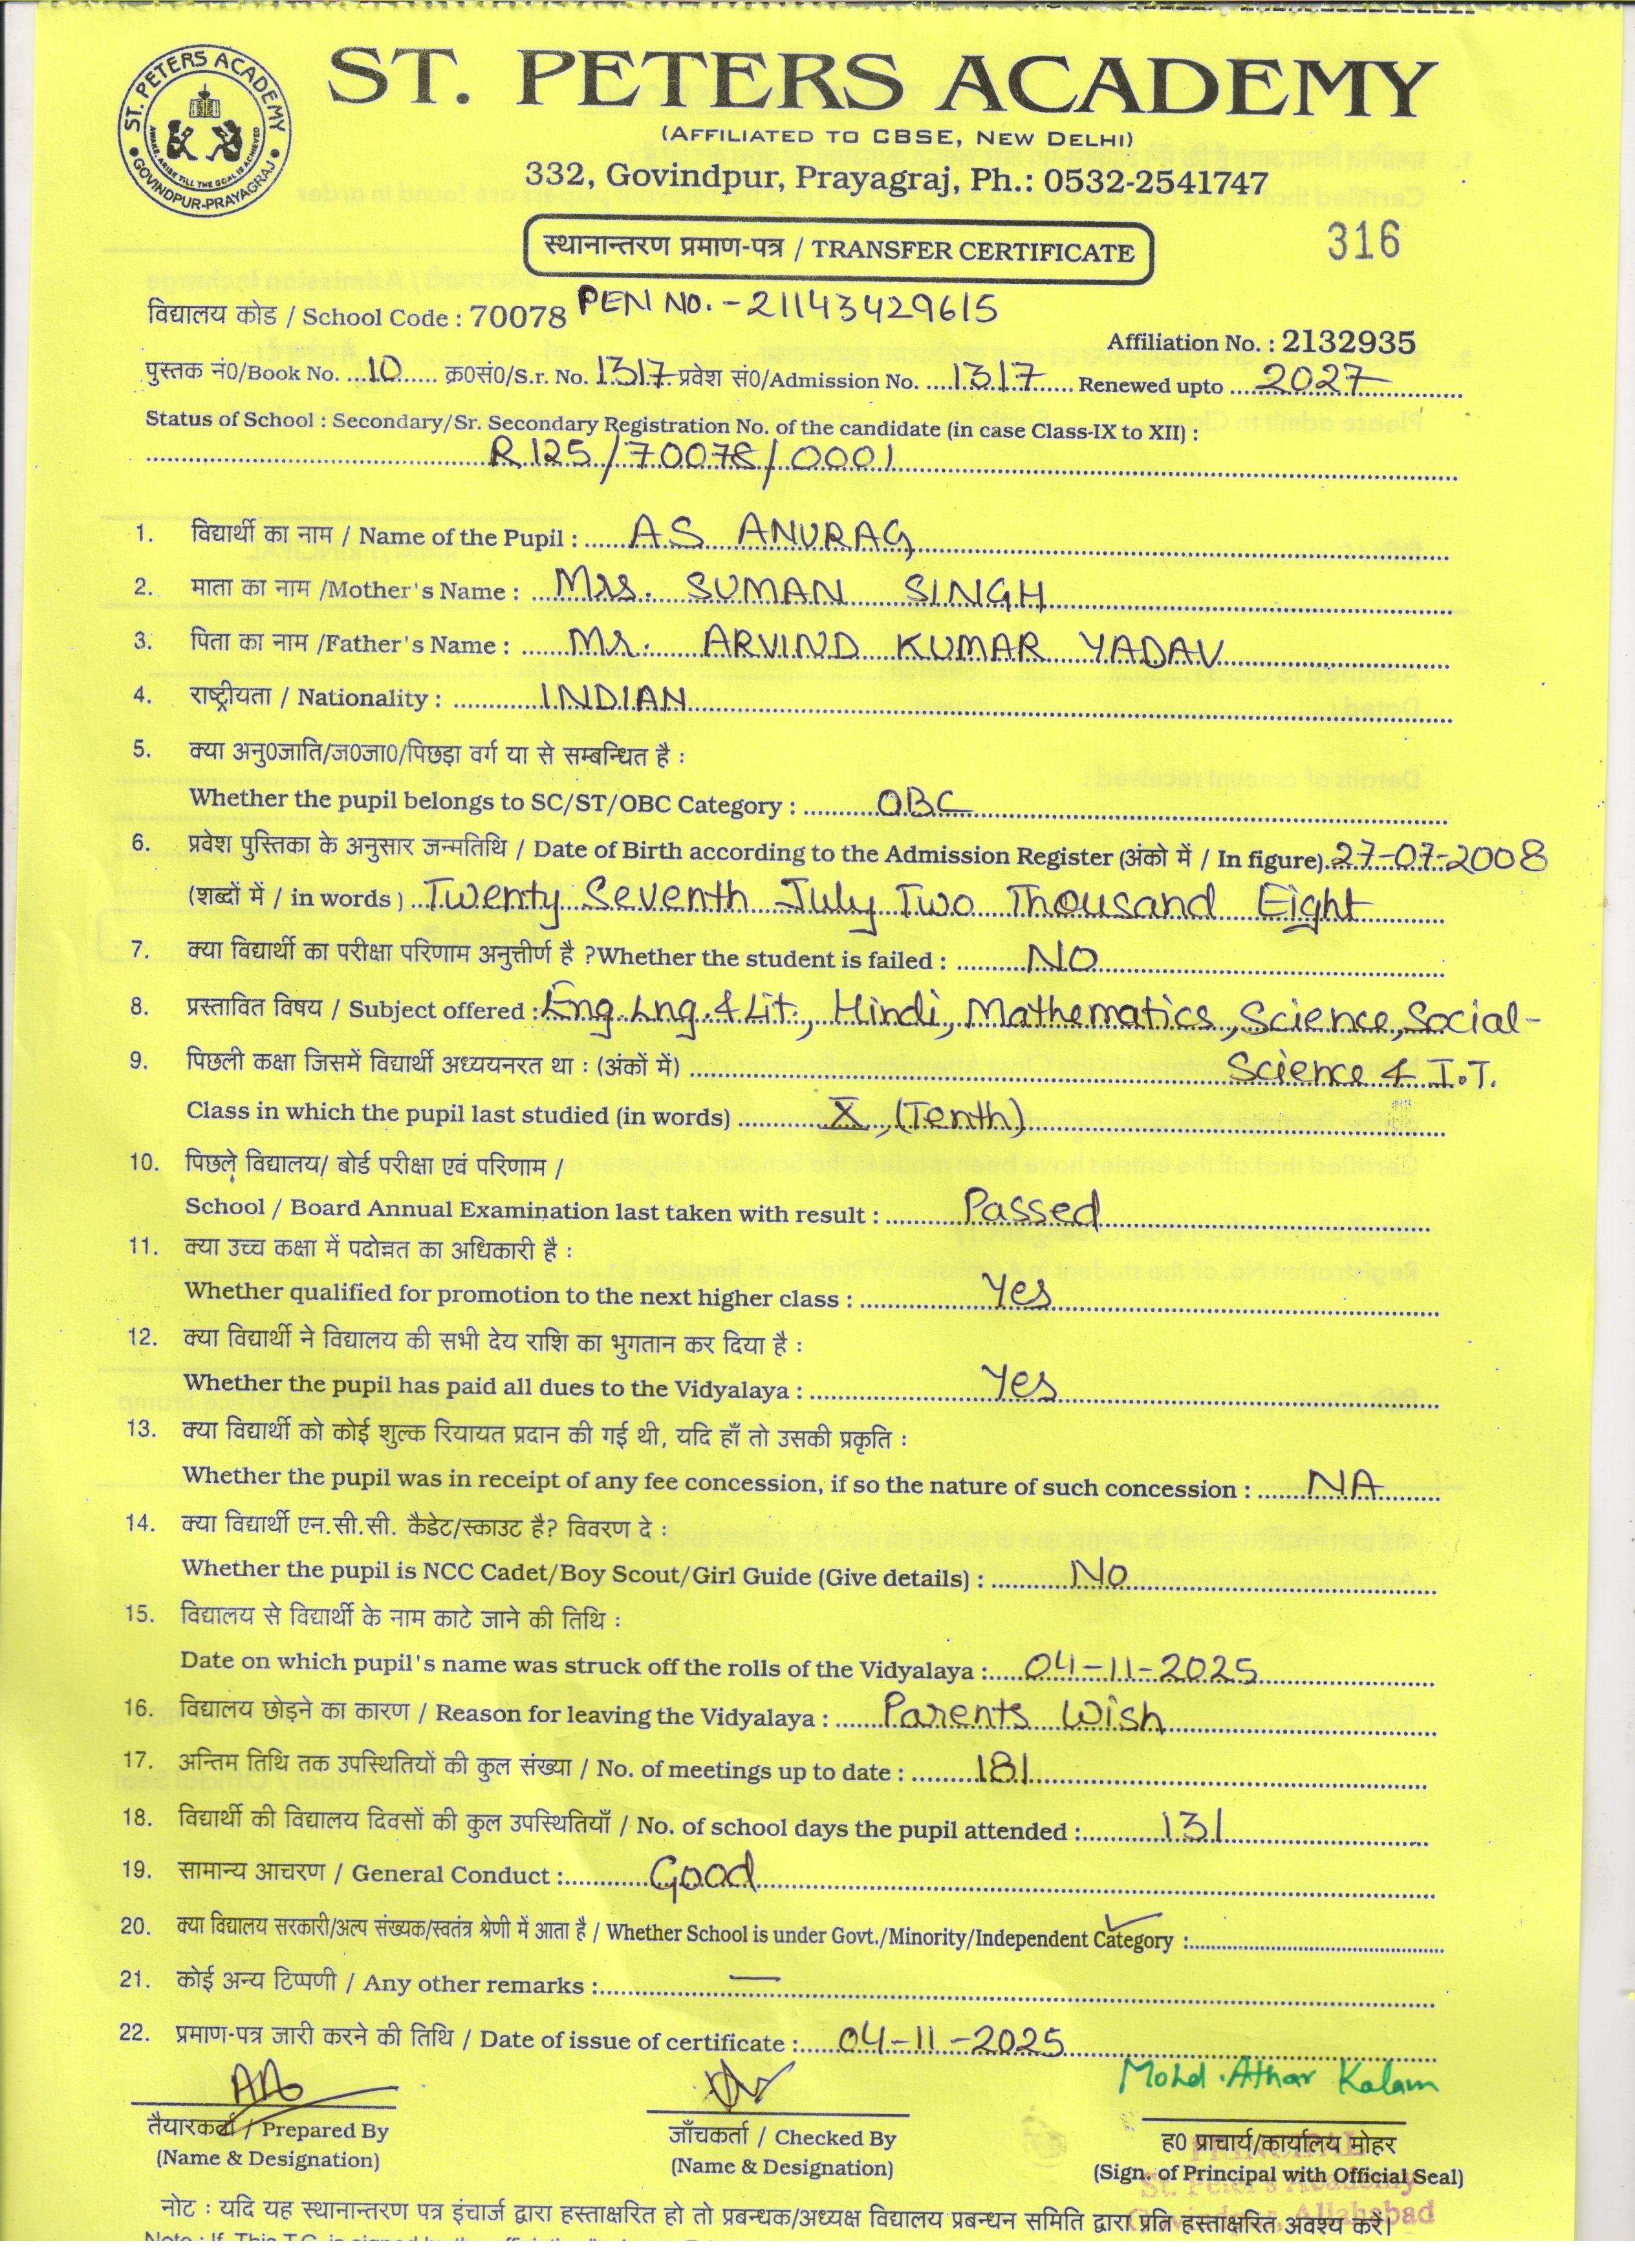 ST. PETERS ACADEMY
ST. PETERS ACADEMY
AWAKE, ARISE TILL THE GOAL IS ACHIEVED
GOVINDPUR-PRAYAGRAJ
(AFFILIATED TO CBSE, NEW DELHI)
332, Govindpur, Prayagraj, Ph.: 0532-2541747
स्थानान्तरण प्रमाण-पत्र / TRANSFER CERTIFICATE
316
विद्यालय कोड / School Code : 70078 PEN NO. - 21143429615
Affiliation No. : 2132935
पुस्तक नं0/Book No. 10 क्र0सं0/S.r. No. 1317 प्रवेश सं0/Admission No. 1317 Renewed upto 2027
Status of School : Secondary/Sr. Secondary Registration No. of the candidate (in case Class-IX to XII) :
R125/70078/0001
1. विद्यार्थी का नाम / Name of the Pupil : AS ANURAG
2. माता का नाम /Mother's Name : Mrs. SUMAN SINGH
3. पिता का नाम /Father's Name : Mr. ARVIND KUMAR YADAV
4. राष्ट्रीयता / Nationality : INDIAN
5. क्या अनु0जाति/ज0जा0/पिछड़ा वर्ग या से सम्बन्धित है :
Whether the pupil belongs to SC/ST/OBC Category : OBC
6. प्रवेश पुस्तिका के अनुसार जन्मतिथि / Date of Birth according to the Admission Register (अंको में / In figure). 27-07-2008
(शब्दों में / in words ) Twenty Seventh July Two Thousand Eight
7. क्या विद्यार्थी का परीक्षा परिणाम अनुत्तीर्ण है ?Whether the student is failed : NO
8. प्रस्तावित विषय / Subject offered : Eng. Lng. & Lit., Hindi, Mathematics, Science, Social-
Science & I.T.
9. पिछली कक्षा जिसमें विद्यार्थी अध्ययनरत था : (अंकों में)
Class in which the pupil last studied (in words) X, (Tenth)
10. पिछले विद्यालय/ बोर्ड परीक्षा एवं परिणाम /
School / Board Annual Examination last taken with result : Passed
11. क्या उच्च कक्षा में पदोन्नत का अधिकारी है :
Whether qualified for promotion to the next higher class : Yes
12. क्या विद्यार्थी ने विद्यालय की सभी देय राशि का भुगतान कर दिया है :
Whether the pupil has paid all dues to the Vidyalaya : Yes
13. क्या विद्यार्थी को कोई शुल्क रियायत प्रदान की गई थी, यदि हाँ तो उसकी प्रकृति :
Whether the pupil was in receipt of any fee concession, if so the nature of such concession : NA
14. क्या विद्यार्थी एन.सी.सी. कैडेट/स्काउट है? विवरण दे :
Whether the pupil is NCC Cadet/Boy Scout/Girl Guide (Give details) : No
15. विद्यालय से विद्यार्थी के नाम काटे जाने की तिथि :
Date on which pupil's name was struck off the rolls of the Vidyalaya : 04-11-2025
16. विद्यालय छोड़ने का कारण / Reason for leaving the Vidyalaya : Parents Wish
17. अन्तिम तिथि तक उपस्थितियों की कुल संख्या / No. of meetings up to date : 181
18. विद्यार्थी की विद्यालय दिवसों की कुल उपस्थितियाँ / No. of school days the pupil attended : 131
19. सामान्य आचरण / General Conduct : Good
20. क्या विद्यालय सरकारी/अल्प संख्यक/स्वतंत्र श्रेणी में आता है / Whether School is under Govt./Minority/Independent Category :
21. कोई अन्य टिप्पणी / Any other remarks : —
22. प्रमाण-पत्र जारी करने की तिथि / Date of issue of certificate : 04-11-2025
Mohd. Athar Kalam
तैयारकर्ता / Prepared By
(Name & Designation)
जाँचकर्ता / Checked By
(Name & Designation)
ह0 प्राचार्य/कार्यालय मोहर
(Sign. of Principal with Official Seal)
PRINCIPAL
St. Peter's Academy
Govindpur, Allahabad
नोट : यदि यह स्थानान्तरण पत्र इंचार्ज द्वारा हस्ताक्षरित हो तो प्रबन्धक/अध्यक्ष विद्यालय प्रबन्धन समिति द्वारा प्रति हस्ताक्षरित अवश्य करें।